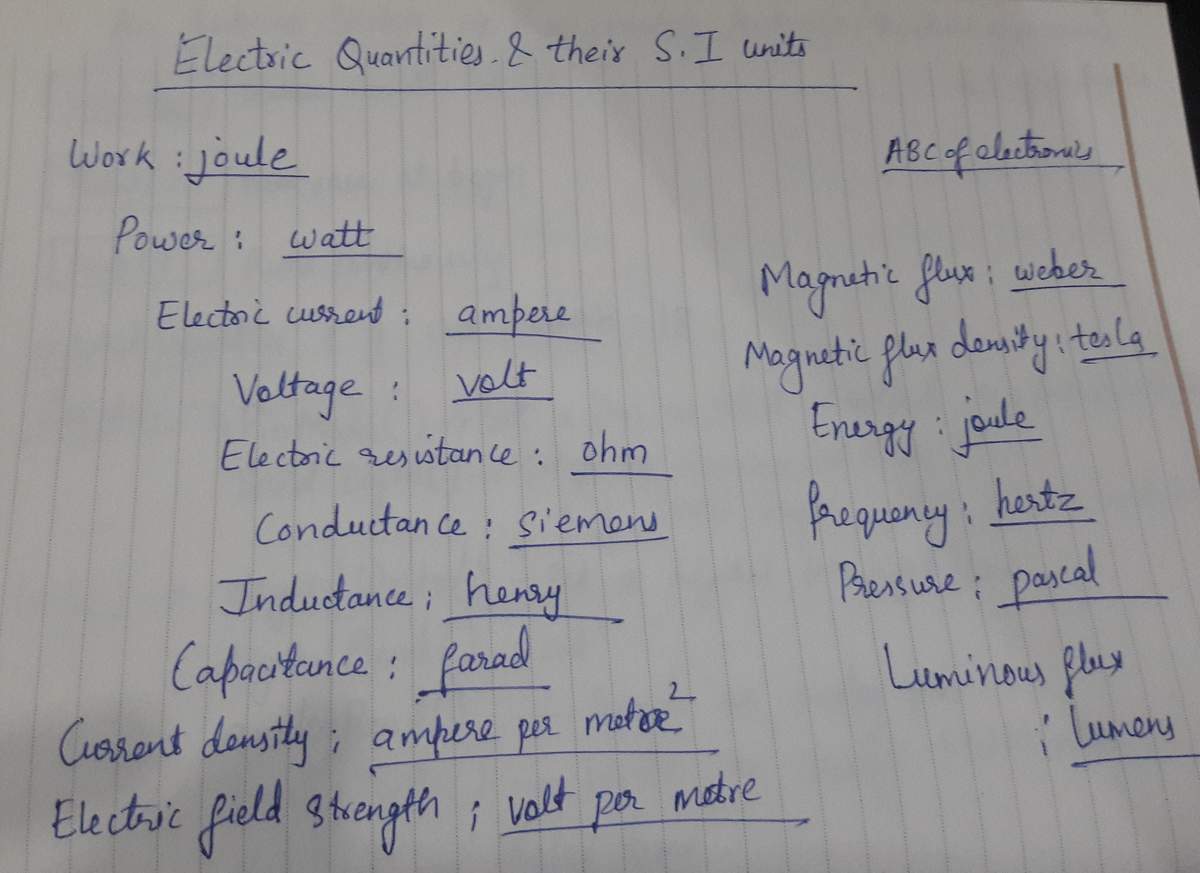 Electric Quantities. & their S.I units
Work : joule
Power : watt
Electric current : ampere
Voltage : volt
Electric resistance : ohm
Conductance : siemens
Inductance ; henry
Capacitance : farad
Current density ; ampere per metre²
Electric field strength ; volt per metre
ABC of electronics
Magnetic flux : weber
Magnetic flux density : tesla
Energy : joule
frequency ; hertz
Pressure ; pascal
Luminous flux
; lumens